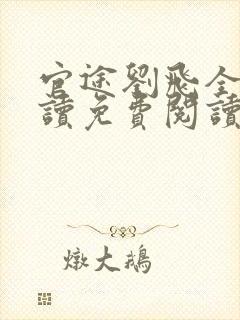 官途劉飛全
讀免費閱讀
燉大鵝